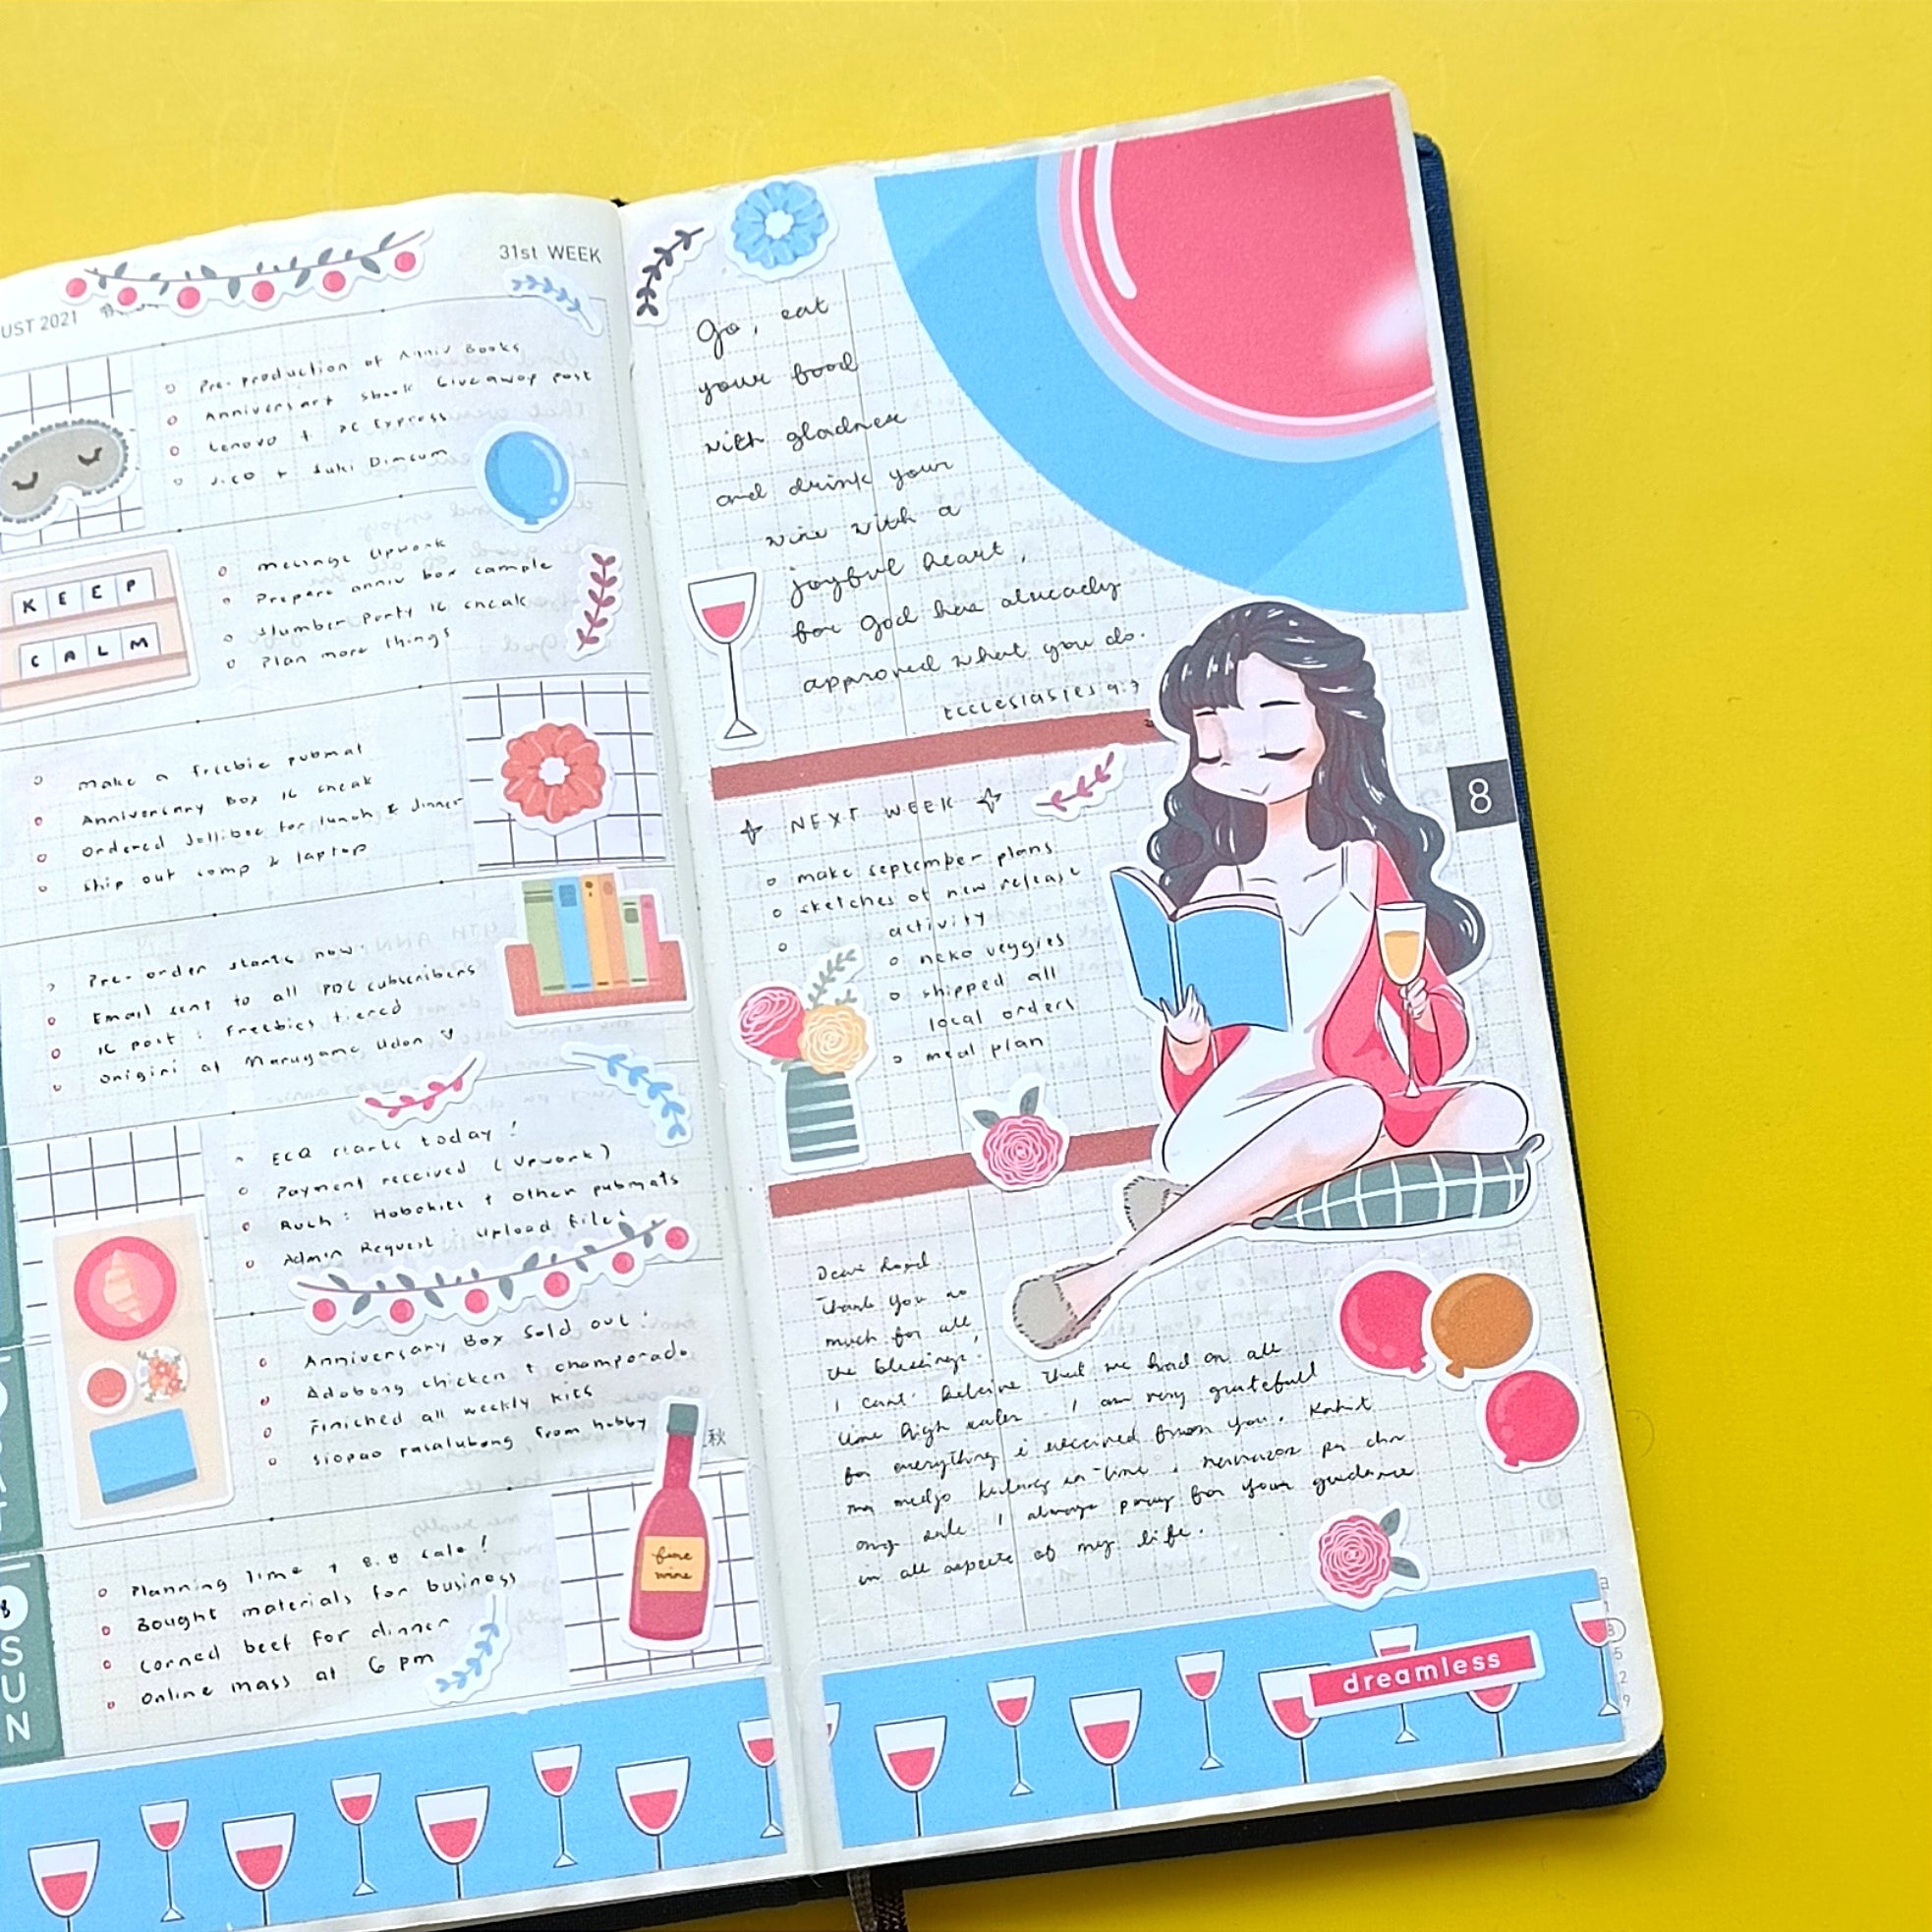 31st WEEK
UST 2021
Pre-production of Anniv Books
Anniversary sbook Giveaway post
Lenovo + PC Express
J.CO + Suki Dimsum
KEEP
CALM
message upwork
Prepare anniv box sample
Slumber Party IG sneak
Plan more things
make a freebie pubmat
Anniversary Box IG sneak
ordered Jollibee for lunch & dinner
ship out comp & laptop
Pre-order starts now.
Email sent to all PDC subscribers
IG post: Freebies tiered
Onigiri at Marugame Udon
ECQ starts today!
Payment received (Upwork)
Rush: Hobokits + other pubmats
Admin Request upload files
Anniversary Box sold out!
Adobong chicken + champorado
Finished all weekly kits
siopao pasalubong from hubby
秋
fine
wine
8
SUN
Planning Time + 8.8 sale!
Bought materials for business
Corned beef for dinner
Online mass at 6 pm
Go, eat
your food
with gladness
and drink your
wine with a
joyful heart,
for God has already
approved what you do.
Ecclesiastes 9:7
NEXT WEEK
8
make september plans
sketches of new release
activity
neko veggies
shipped all
local orders
meal plan
Dear Lord.
Thank you so
much for all
the blessings!
I can't believe that we had an all
time high sales. I am very grateful
for everything i received from you. Kahit
na medjo
I always pray for your guidance
in all aspects of my life.
dreamless